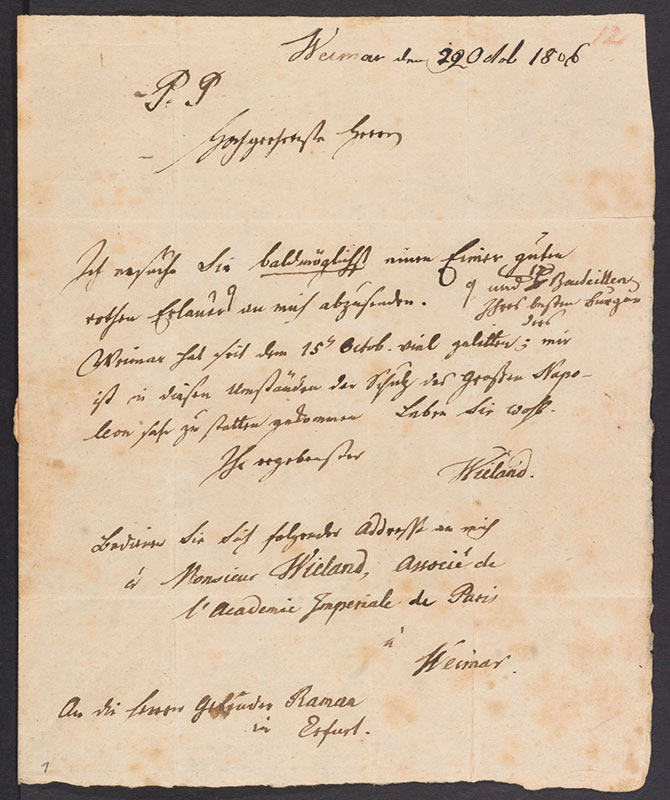 12
Weimar den 29 Octob 1806
P. P
Hochgeehrteste Herrn
Ich ersuche Sie baldmöglichst einen Eimer guten
rothen Erlauer an mich abzusenden.
und Bouteillen
Ihres besten Burgun
ders
Weimar hat seit dem 15ten Octob. viel gelitten; mir
ist in diesen Umständen der Schutz des Großen Napo-
leon sehr zu statten gekommen Leben Sie wohl.
Ihr ergebenster
Wieland.
Bedienen Sie sich folgender Addresse an mich
à Monsieur Wieland, Associé de
l'Academie Imperiale de Paris
à
Weimar.
An die Herren Gebrüder Raman
in Erfurt.
1